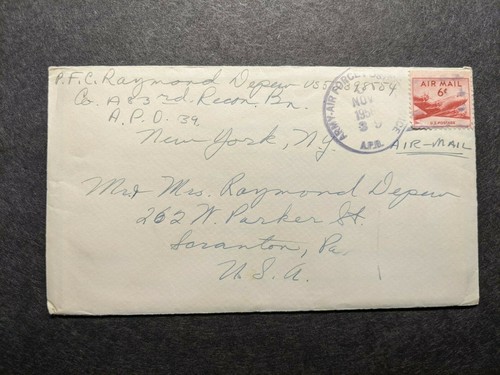 P.F.C. Raymond Depew US
Co. A 83rd. Recon. Bn.
A.P.O. 39
New York, N.Y.
ARMY-AIR FORCE
NOV
A.P.O.
AIR MAIL
6¢
U.S. POSTAGE
AIR-MAIL
Mr + Mrs. Raymond Depew
262 W. Parker St.
Scranton, Pa.
U.S.A.